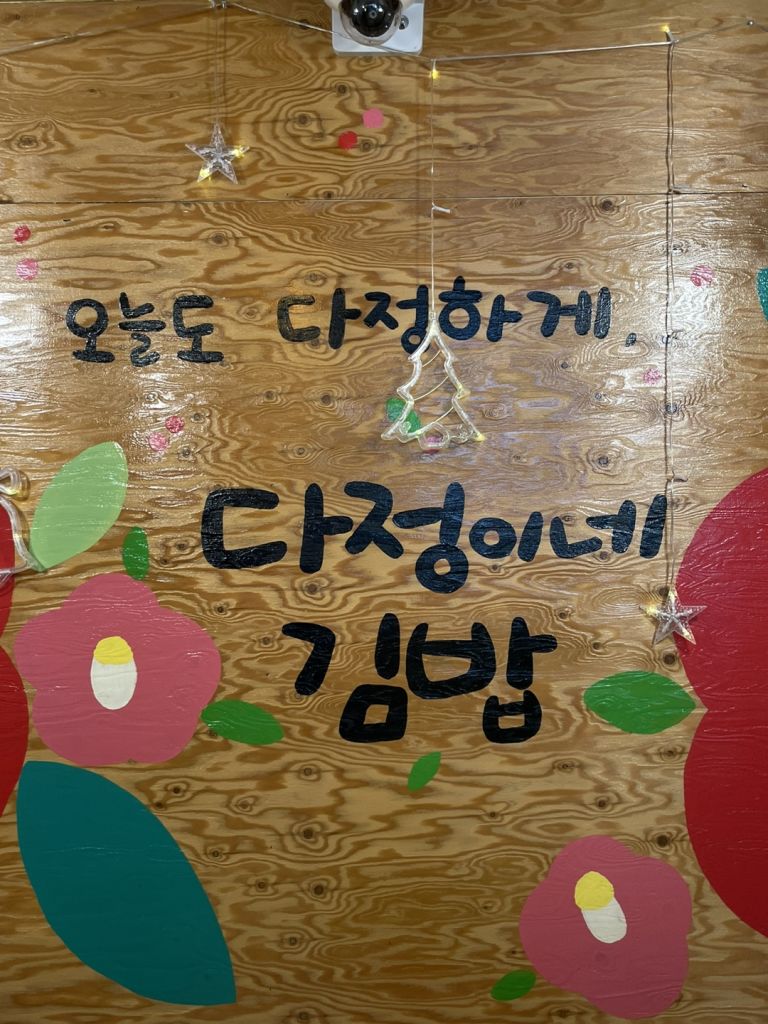 오늘도 다정하게,
다정이네
김밥